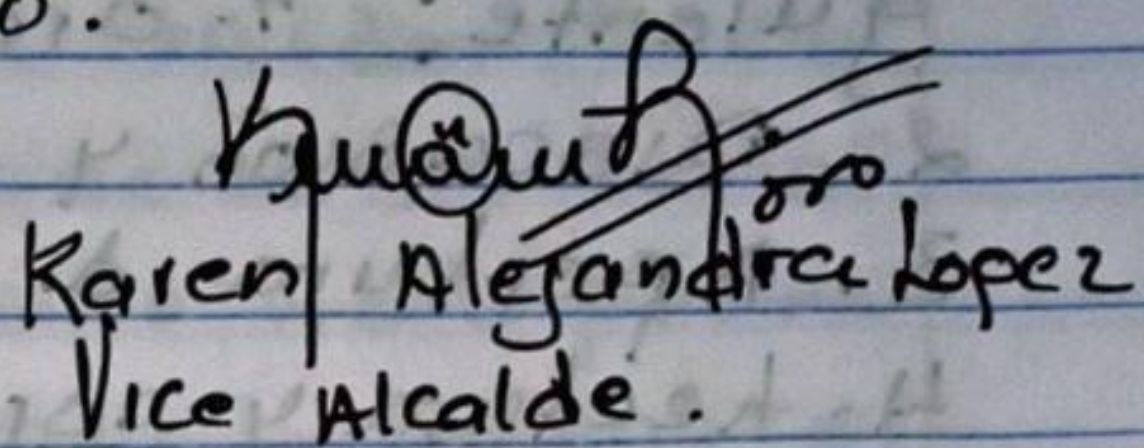 Karen Alejandra Lopez
Vice Alcalde.